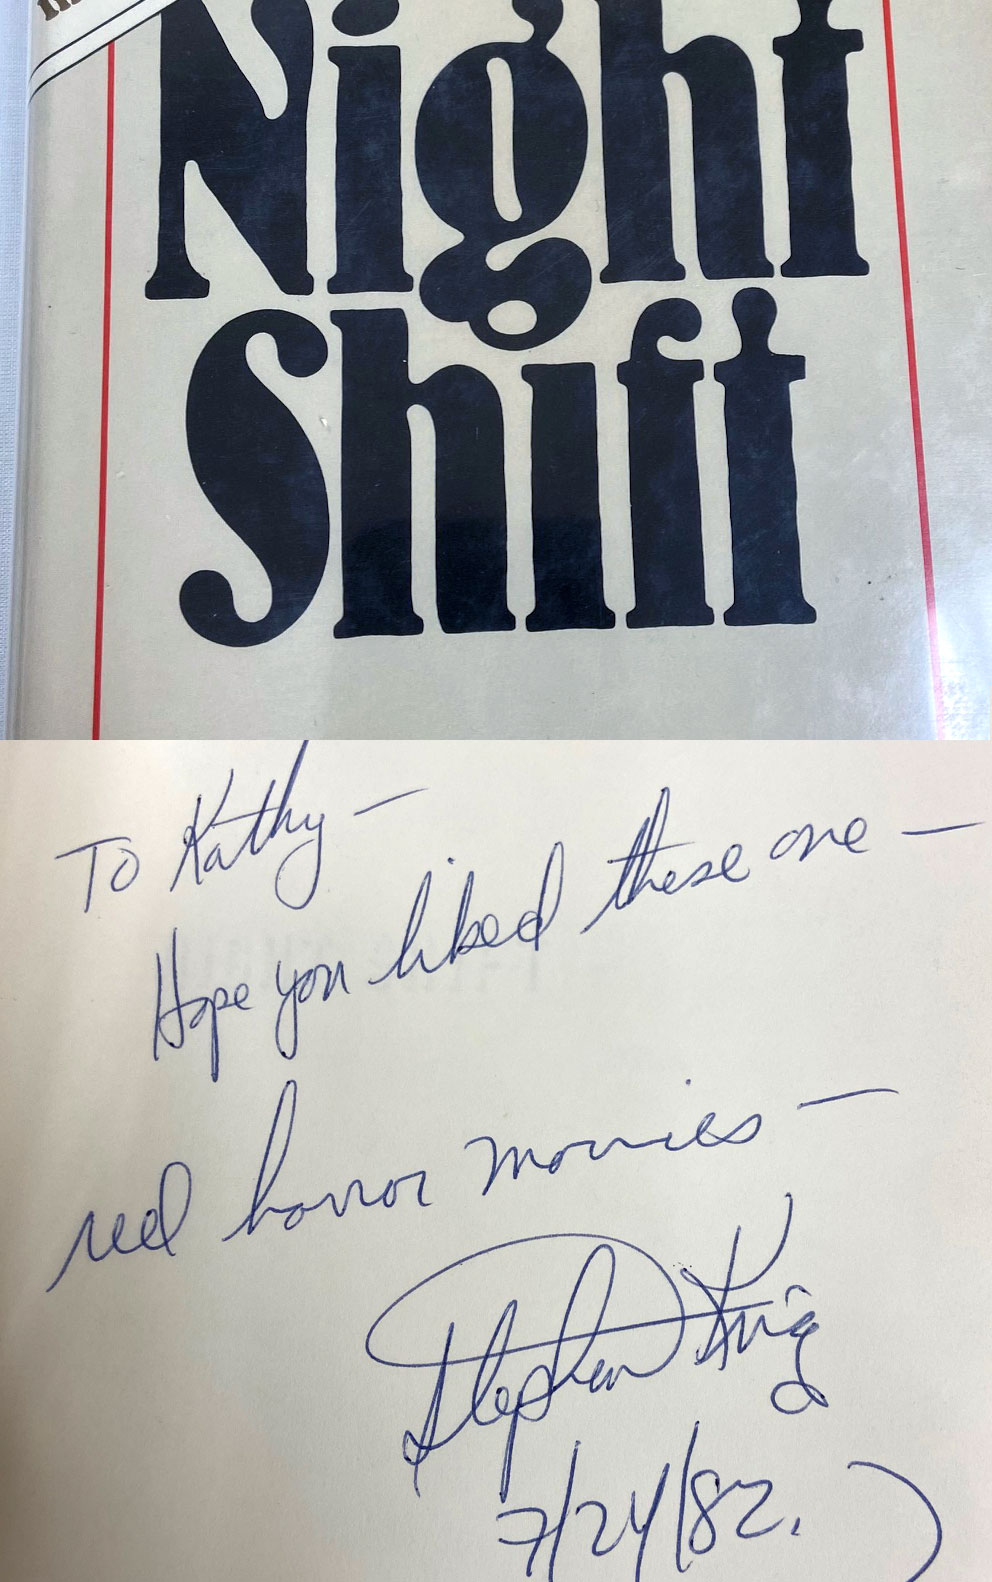 Night
Shift
To Kathy —
Hope you liked these one —
red horror movies —
Stephen King
7/24/82.